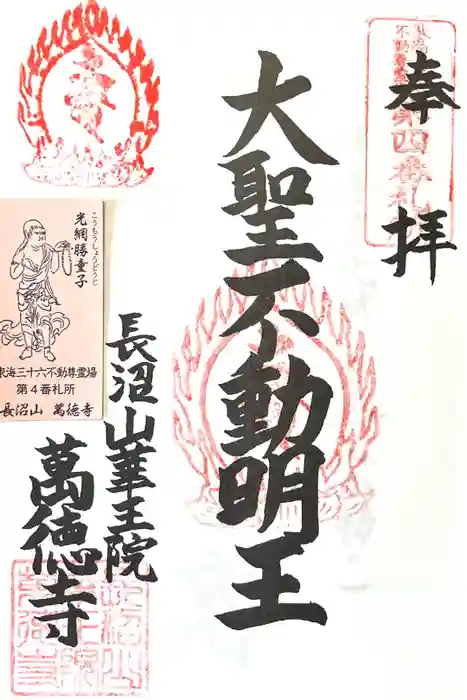 奉拝
大聖不動明王
長沼山華王院
萬徳寺
第四番札所
こうもうしょうどうじ
光網勝童子
東海三十六不動尊霊場
第4番札所
長沼山 萬徳寺